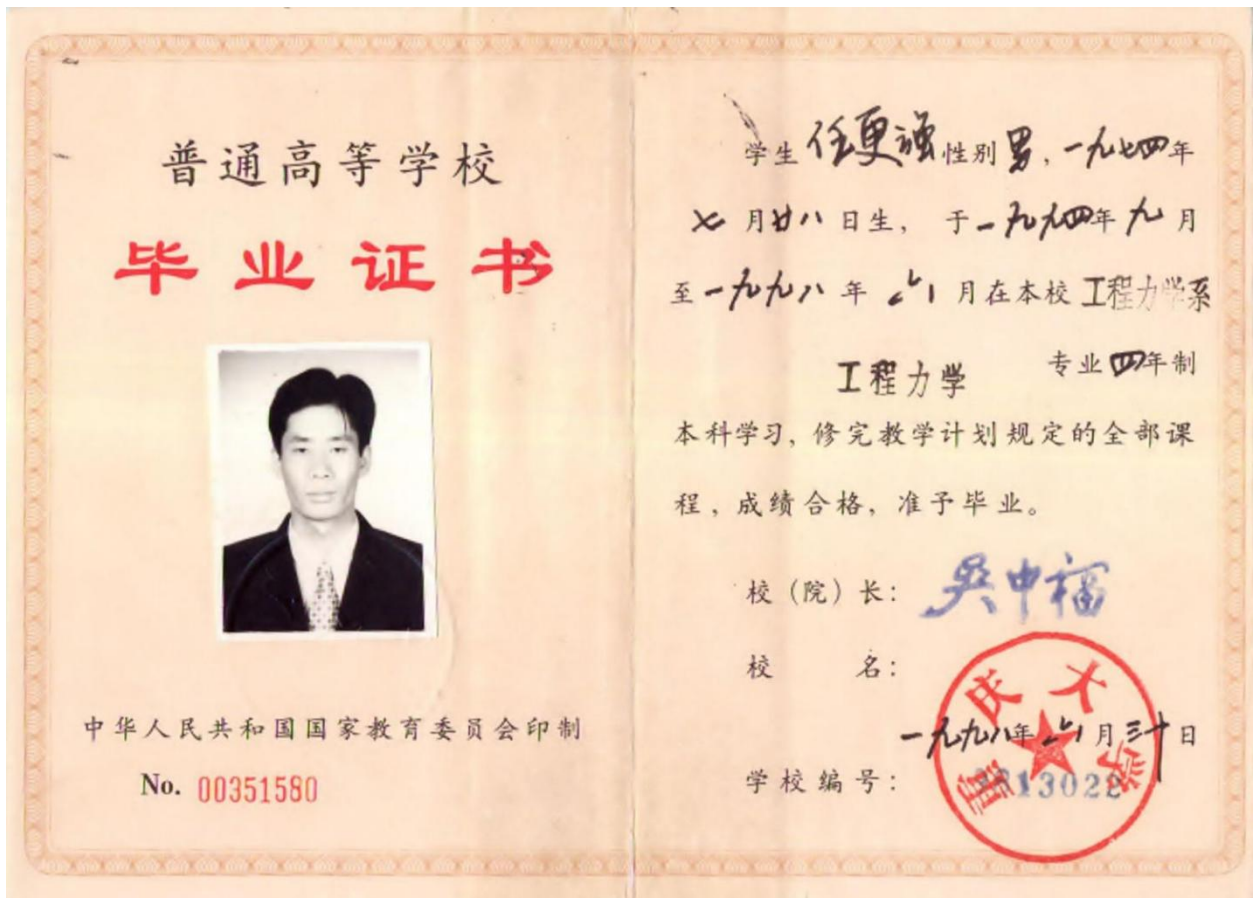 普通高等学校
毕业证书
中华人民共和国国家教育委员会印制
No. 00351580
学生 任更强 性别 男，一九七四年
七月廿八日生，于一九九四年九月
至一九九八年六月在本校 工程力学系
工程力学 专业四年制
本科学习，修完教学计划规定的全部课
程，成绩合格，准予毕业。
校（院）长： 吴中福
校 名：
重庆大学
一九九八年六月三十日
学校编号： 13022